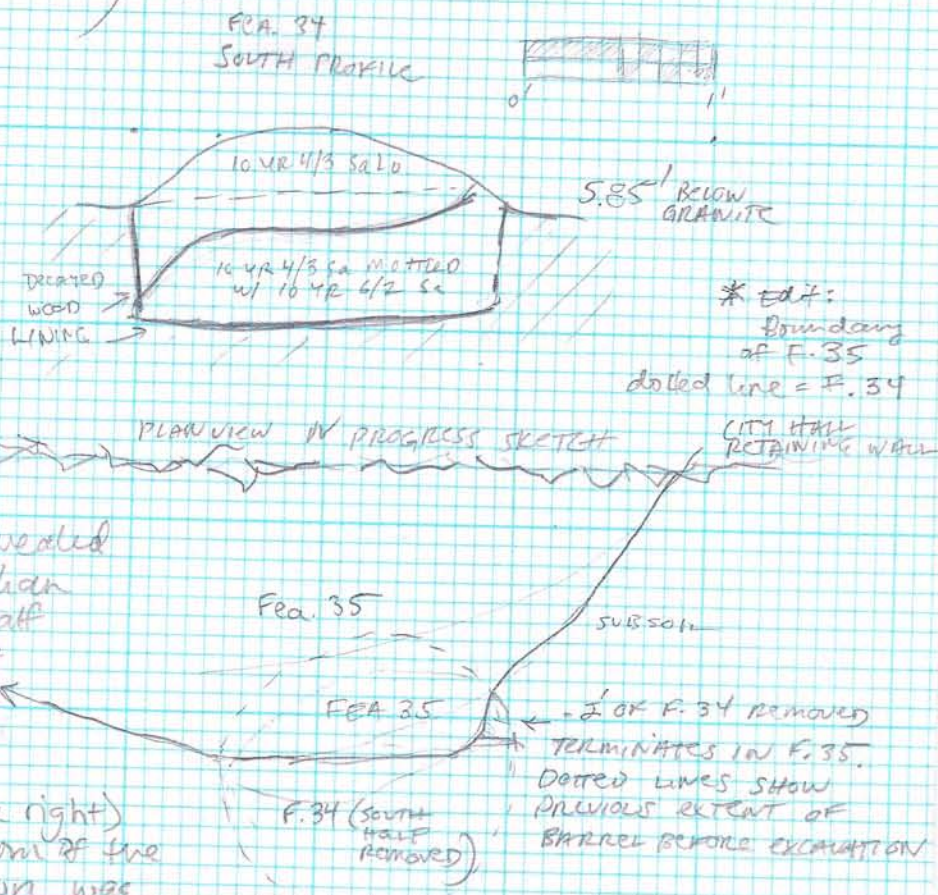 FEA. 34
SOUTH PROFILE
0' 1'
10 YR 4/3 SaLo
5.85' BELOW
GRANITE
10 YR 4/3 Sa MOTTLED
W/ 10 YR 6/2 Sa
DECAYED
WOOD
LINING
* Edit:
Boundary
of F. 35
dotted line = F. 34
PLANVIEW IN PROGRESS SKETCH
CITY HALL
RETAINING WALL
vealed
han
alf
Fea. 35
SUBSOIL
FEA 35
OF F. 34 REMOVED
TERMINATES IN F. 35.
DOTTED LINES SHOW
PREVIOUS EXTENT OF
BARREL BEFORE EXCAVATION
F. 34 (SOUTH
HALF
REMOVED)
right)
om of the
was